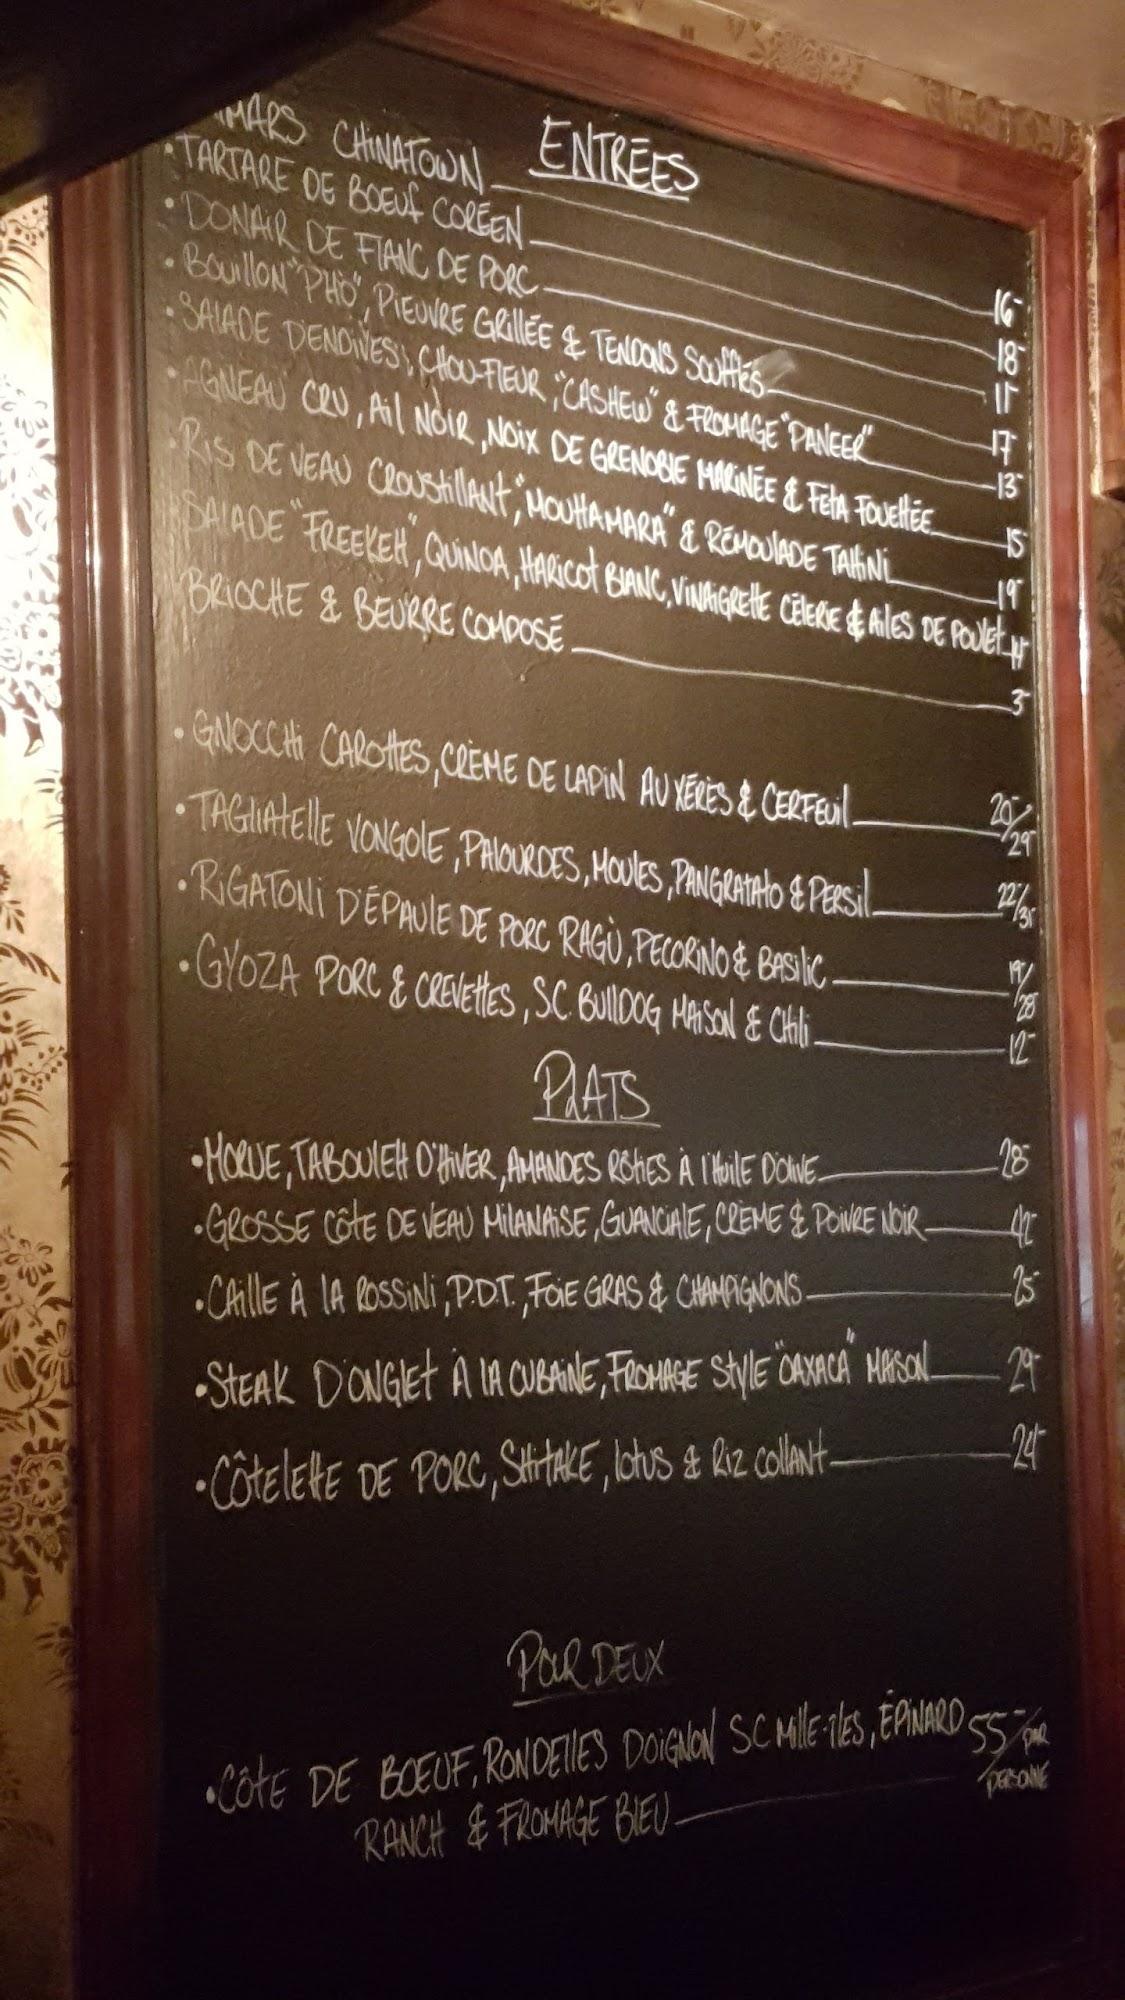 ENTRÉES
CHINATOWN 16-
• TARTARE DE BOEUF CORÉEN 18-
• DONAIR DE FLANC DE PORC 11-
• BOUILLON "PHÒ", PIEUVRE GRILLÉE & TENDONS SOUFFLÉS 17-
• SALADE D'ENDIVES, CHOU-FLEUR, "CASHEW" & FROMAGE "PANEER" 13-
• AGNEAU CRU, AIL NOIR, NOIX DE GRENOBLE MARINÉE & FETA FOUETTÉE 15-
RIS DE VEAU CROUSTILLANT, "MOUHAMARA" & RÉMOULADE TAHINI 19-
SALADE "FREEKEH", QUINOA, HARICOT BLANC, VINAIGRETTE CÉLERIE & AILES DE POULET
BRIOCHE & BEURRE COMPOSÉ 3-
• GNOCCHI CAROTTES, CRÈME DE LAPIN AU XÉRÈS & CERFEUIL 20-/29-
• TAGLIATELLE VONGOLE, PALOURDES, MOULES, PANGRATATO & PERSIL 22-/31-
• RIGATONI D'ÉPAULE DE PORC RAGÙ, PECORINO & BASILIC 19/28-
• GYOZA PORC & CREVETTES, SC. BULLDOG MAISON & CHILI 12-
PLATS
• MORUE, TABOULEH D'HIVER, AMANDES RÔTIES À L'HUILE D'OLIVE 28-
• GROSSE CÔTE DE VEAU MILANAISE, GUANCIALE, CRÈME & POIVRE NOIR 42-
• CAILLE À LA ROSSINI, P.D.T., FOIE GRAS & CHAMPIGNONS 25-
• STEAK D'ONGLET À LA CUBAINE, FROMAGE STYLE "OAXACA" MAISON 29-
• CÔTELETTE DE PORC, SHITAKE, LOTUS & RIZ COLLANT 24-
POUR DEUX
• CÔTE DE BOEUF, RONDELLES D'OIGNON SC MILLE-ÎLES, ÉPINARD 55-/PAR PERSONNE
RANCH & FROMAGE BLEU